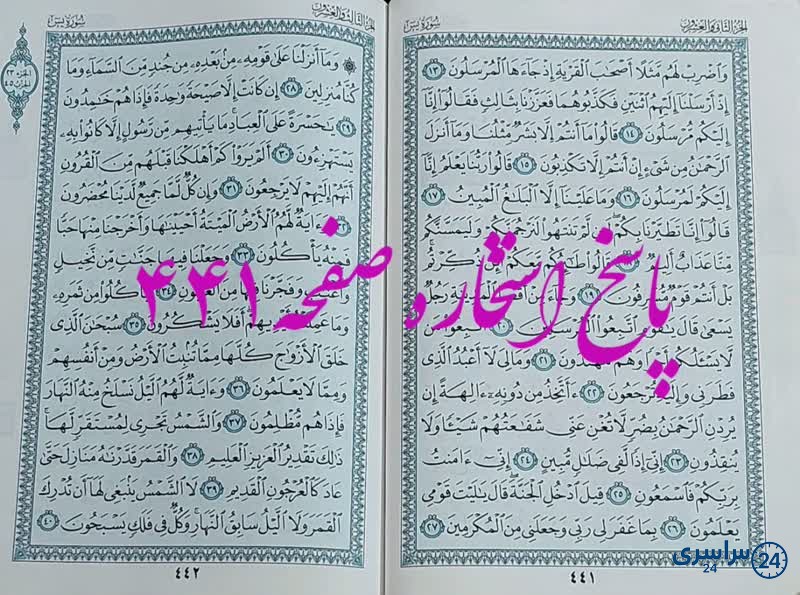 الجزء الثاني والعشرون سورة يس
وَاضْرِبْ لَهُم مَّثَلًا أَصْحَٰبَ الْقَرْيَةِ إِذْ جَآءَهَا الْمُرْسَلُونَ ١٣
إِذْ أَرْسَلْنَآ إِلَيْهِمُ اثْنَيْنِ فَكَذَّبُوهُمَا فَعَزَّزْنَا بِثَالِثٍ فَقَالُوٓا إِنَّآ
إِلَيْكُم مُّرْسَلُونَ ١٤ قَالُوا مَآ أَنتُمْ إِلَّا بَشَرٌ مِّثْلُنَا وَمَآ أَنزَلَ
الرَّحْمَٰنُ مِن شَىْءٍ إِنْ أَنتُمْ إِلَّا تَكْذِبُونَ ١٥ قَالُوا رَبُّنَا يَعْلَمُ إِنَّآ
إِلَيْكُمْ لَمُرْسَلُونَ ١٦ وَمَا عَلَيْنَآ إِلَّا الْبَلَٰغُ الْمُبِينُ ١٧
قَالُوٓا إِنَّا تَطَيَّرْنَا بِكُمْ لَئِن لَّمْ تَنتَهُوا لَنَرْجُمَنَّكُمْ وَلَيَمَسَّنَّكُم
مِّنَّا عَذَابٌ أَلِيمٌ قَالُوا طَٰٓئِرُكُم مَّعَكُمْ أَئِن ذُكِّرْتُم
بَلْ أَنتُمْ قَوْمٌ مُّسْرِفُونَ ١٩ وَجَآءَ مِنْ أَقْصَا الْمَدِينَةِ رَجُلٌ
يَسْعَىٰ قَالَ يَٰقَوْمِ اتَّبِعُوا الْمُرْسَلِينَ ٢٠ اتَّبِعُوا مَن
لَّا يَسْـَٔلُكُمْ أَجْرًا وَهُم مُّهْتَدُونَ ٢١ وَمَا لِىَ لَآ أَعْبُدُ الَّذِى
فَطَرَنِى وَإِلَيْهِ تُرْجَعُونَ ٢٢ ءَأَتَّخِذُ مِن دُونِهِۦٓ ءَالِهَةً إِن
يُرِدْنِ الرَّحْمَٰنُ بِضُرٍّ لَّا تُغْنِ عَنِّى شَفَٰعَتُهُمْ شَيْـًٔا وَلَا
يُنقِذُونِ ٢٣ إِنِّىٓ إِذًا لَّفِى ضَلَٰلٍ مُّبِينٍ ٢٤ إِنِّىٓ ءَامَنتُ
بِرَبِّكُمْ فَاسْمَعُونِ ٢٥ قِيلَ ادْخُلِ الْجَنَّةَ قَالَ يَٰلَيْتَ قَوْمِى
يَعْلَمُونَ ٢٦ بِمَا غَفَرَ لِى رَبِّى وَجَعَلَنِى مِنَ الْمُكْرَمِينَ ٢٧
٤٤١
الجزء الثالث والعشرون سورة يس
الجزء ٢٣
الحزب ٤٥
وَمَآ أَنزَلْنَا عَلَىٰ قَوْمِهِۦ مِنۢ بَعْدِهِۦ مِن جُندٍ مِّنَ السَّمَآءِ وَمَا
كُنَّا مُنزِلِينَ ٢٨ إِن كَانَتْ إِلَّا صَيْحَةً وَٰحِدَةً فَإِذَا هُمْ خَٰمِدُونَ
٢٩ يَٰحَسْرَةً عَلَى الْعِبَادِ مَا يَأْتِيهِم مِّن رَّسُولٍ إِلَّا كَانُوا بِهِۦ
يَسْتَهْزِءُونَ ٣٠ أَلَمْ يَرَوْا كَمْ أَهْلَكْنَا قَبْلَهُم مِّنَ الْقُرُونِ
أَنَّهُمْ إِلَيْهِمْ لَا يَرْجِعُونَ ٣١ وَإِن كُلٌّ لَّمَّا جَمِيعٌ لَّدَيْنَا مُحْضَرُونَ
٣٢ وَءَايَةٌ لَّهُمُ الْأَرْضُ الْمَيْتَةُ أَحْيَيْنَٰهَا وَأَخْرَجْنَا مِنْهَا حَبًّا
فَمِنْهُ يَأْكُلُونَ ٣٣ وَجَعَلْنَا فِيهَا جَنَّٰتٍ مِّن نَّخِيلٍ
وَأَعْنَٰبٍ وَفَجَّرْنَا فِيهَا مِنَ الْعُيُونِ ٣٤ لِيَأْكُلُوا مِن ثَمَرِهِۦ
وَمَا عَمِلَتْهُ أَيْدِيهِمْ أَفَلَا يَشْكُرُونَ ٣٥ سُبْحَٰنَ الَّذِى
خَلَقَ الْأَزْوَٰجَ كُلَّهَا مِمَّا تُنۢبِتُ الْأَرْضُ وَمِنْ أَنفُسِهِمْ
وَمِمَّا لَا يَعْلَمُونَ ٣٦ وَءَايَةٌ لَّهُمُ الَّيْلُ نَسْلَخُ مِنْهُ النَّهَارَ
فَإِذَا هُم مُّظْلِمُونَ ٣٧ وَالشَّمْسُ تَجْرِى لِمُسْتَقَرٍّ لَّهَا
ذَٰلِكَ تَقْدِيرُ الْعَزِيزِ الْعَلِيمِ ٣٨ وَالْقَمَرَ قَدَّرْنَٰهُ مَنَازِلَ حَتَّىٰ
عَادَ كَالْعُرْجُونِ الْقَدِيمِ ٣٩ لَا الشَّمْسُ يَنۢبَغِى لَهَآ أَن تُدْرِكَ
الْقَمَرَ وَلَا الَّيْلُ سَابِقُ النَّهَارِ وَكُلٌّ فِى فَلَكٍ يَسْبَحُونَ ٤٠
٤٤٢
پاسخ استخاره صفحه ۴۴۱
سراسری 24
24